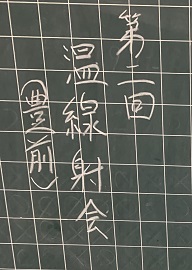 第二回
温線射会
(豊前)